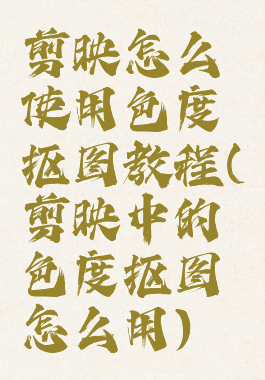 剪映怎么
使用色度
抠图教程(
剪映中的
色度抠图
怎么用)